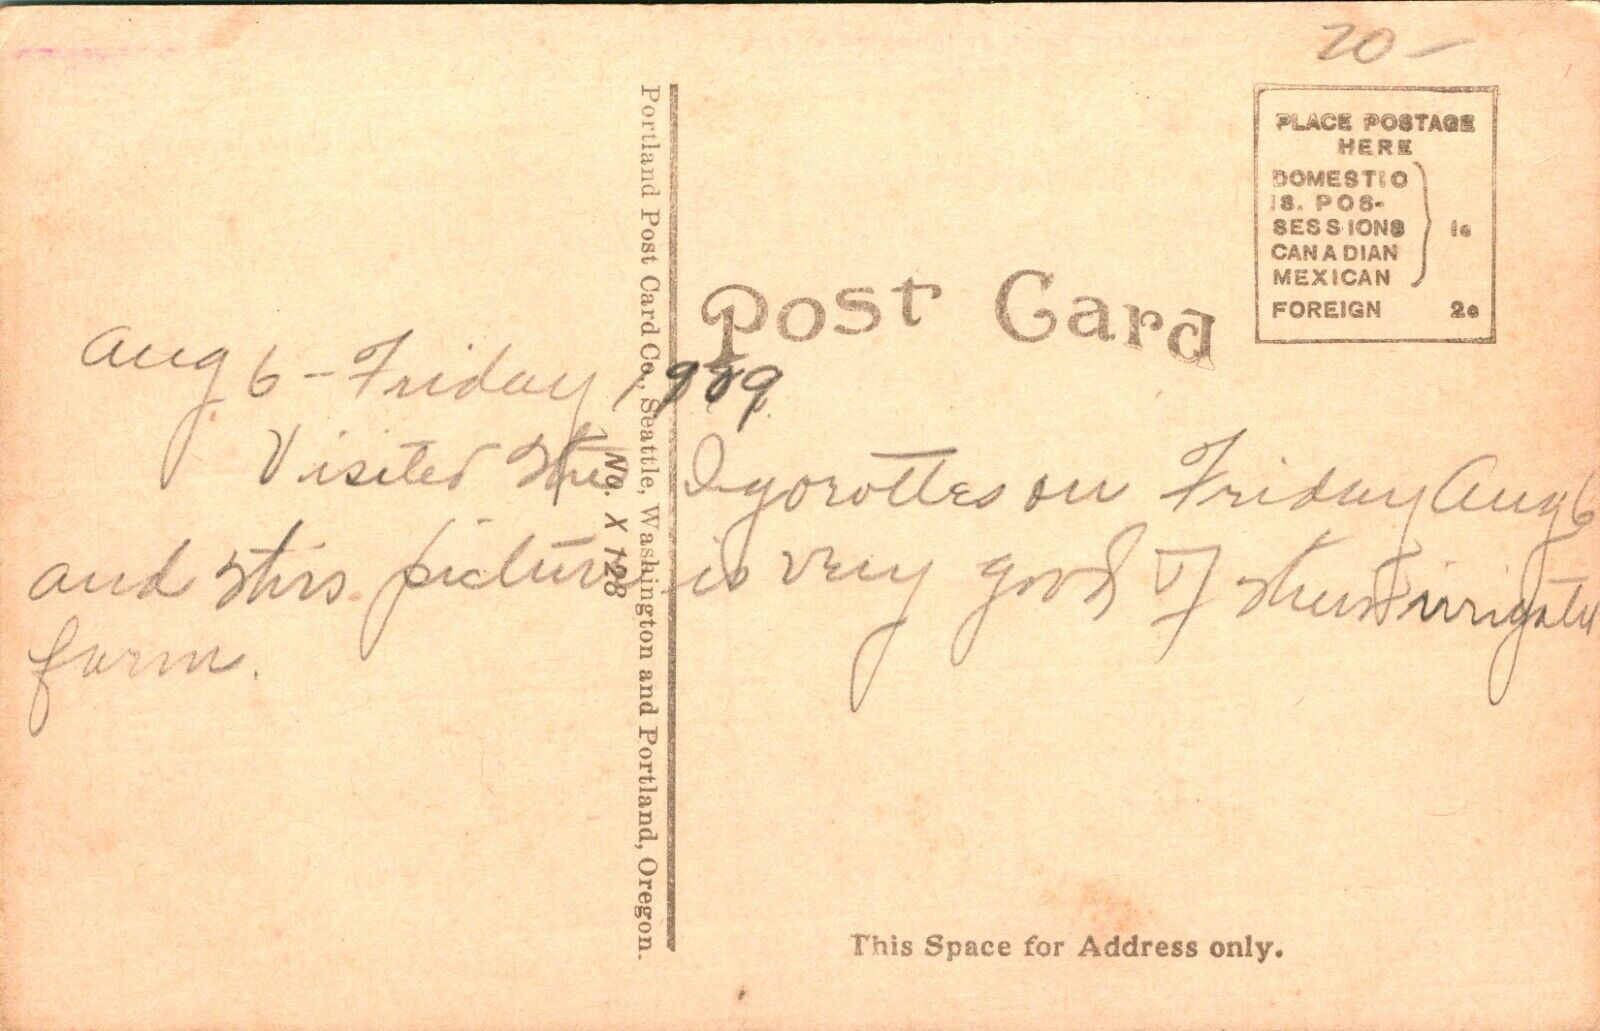 20-
PLACE POSTAGE
HERE
DOMESTIC
IS. POS-
SESSIONS
CANADIAN
MEXICAN
1c
FOREIGN 2c
Post Card
Aug 6 - Friday, 1909
Visited the Igorottes on Friday Aug 6
and this picture is very good of their irrigated
farm.
No. X 128
Portland Post Card Co., Seattle, Washington and Portland, Oregon.
This Space for Address only.